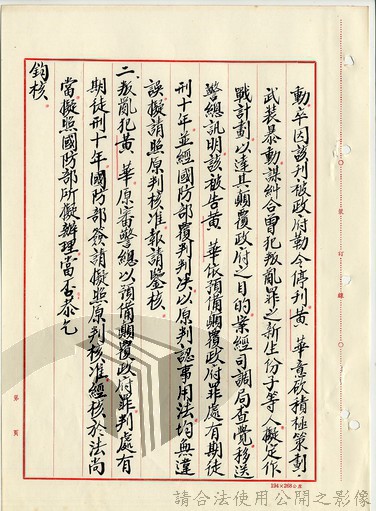 動卒因該刊被政府勒令停刊黃 華意欲積極策劃·
武装暴動謀糾合曾犯叛亂罪之新生份子等人擬定作
戰計劃以達其顛覆政府之目的業經司調局查覺移送
警總訊明該被告黃 華依預備顛覆政府罪處有期徒
刑十年並經國防部覆判判決以原判認事用法均無違
誤擬請照原判核准報請鑒核。
二、叛亂犯黃 華原審警總以預備顛覆政府罪判處有
期徒刑十年國防部簽請擬照原判核准經核於法尚
當擬照國防部所擬辦理當否恭乞
鈞核。
裝訂線
第 頁
194×268公厘
請合法使用公開之影像